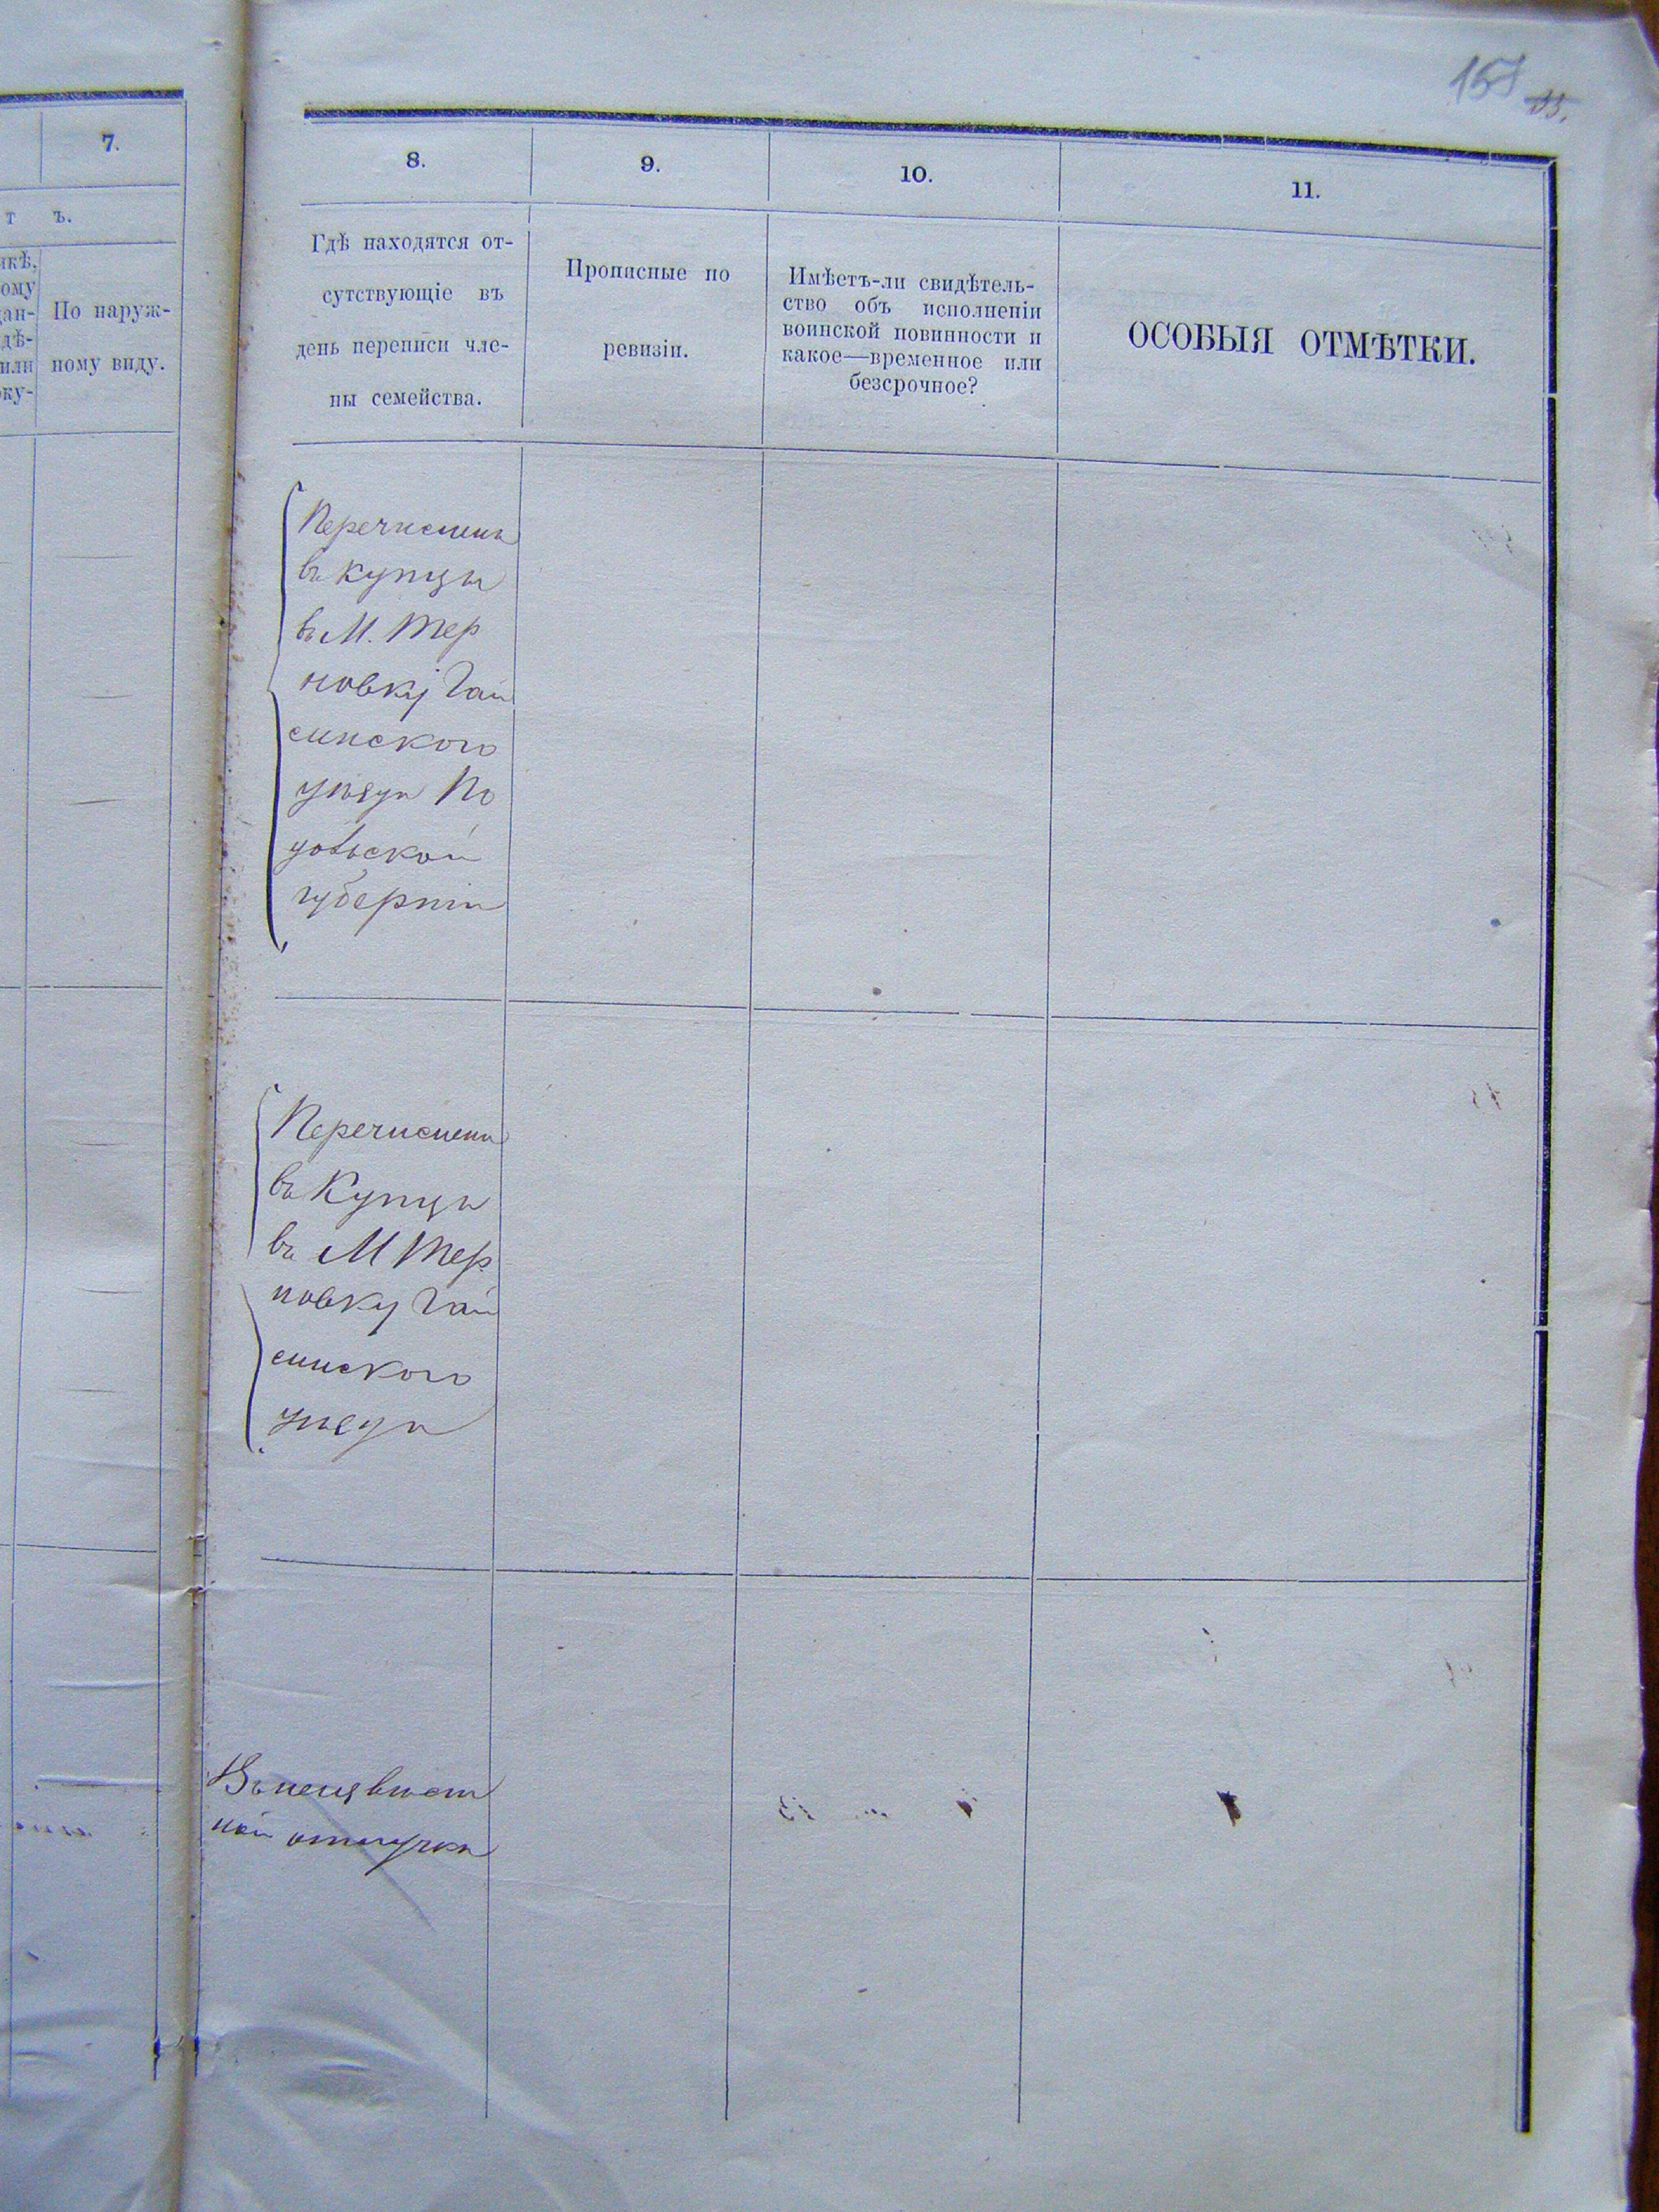 7.
т ъ.
По наруж-
ному виду.
8.
9.
10.
11.
Гдѣ находятся от-
сутствующіе въ
день переписи чле-
ны семейства.
Прописные по
ревизіи.
Имѣетъ-ли свидѣтель-
ство объ исполненіи
воинской повинности и
какое—временное или
безсрочное?
ОСОБЫЯ ОТМѢТКИ.
Перечислены
въ купцы
въ М. Тер
новку Гай
синского
уѣзда По
дольской
губерніи
Перечислены
въ Купцы
въ М Тер
новку Гай
синского
уѣзда
Въ неизвѣст
ной отлучкѣ